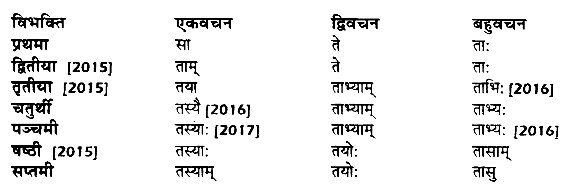 विभक्ति एकवचन द्विवचन बहुवचन
प्रथमा सा ते ताः
द्वितीया [2015] ताम् ते ताः
तृतीया [2015] तया ताभ्याम् ताभिः [2016]
चतुर्थी तस्यै [2016] ताभ्याम् ताभ्यः
पञ्चमी तस्याः [2017] ताभ्याम् ताभ्यः [2016]
षष्ठी [2015] तस्याः तयोः तासाम्
सप्तमी तस्याम् तयोः तासु